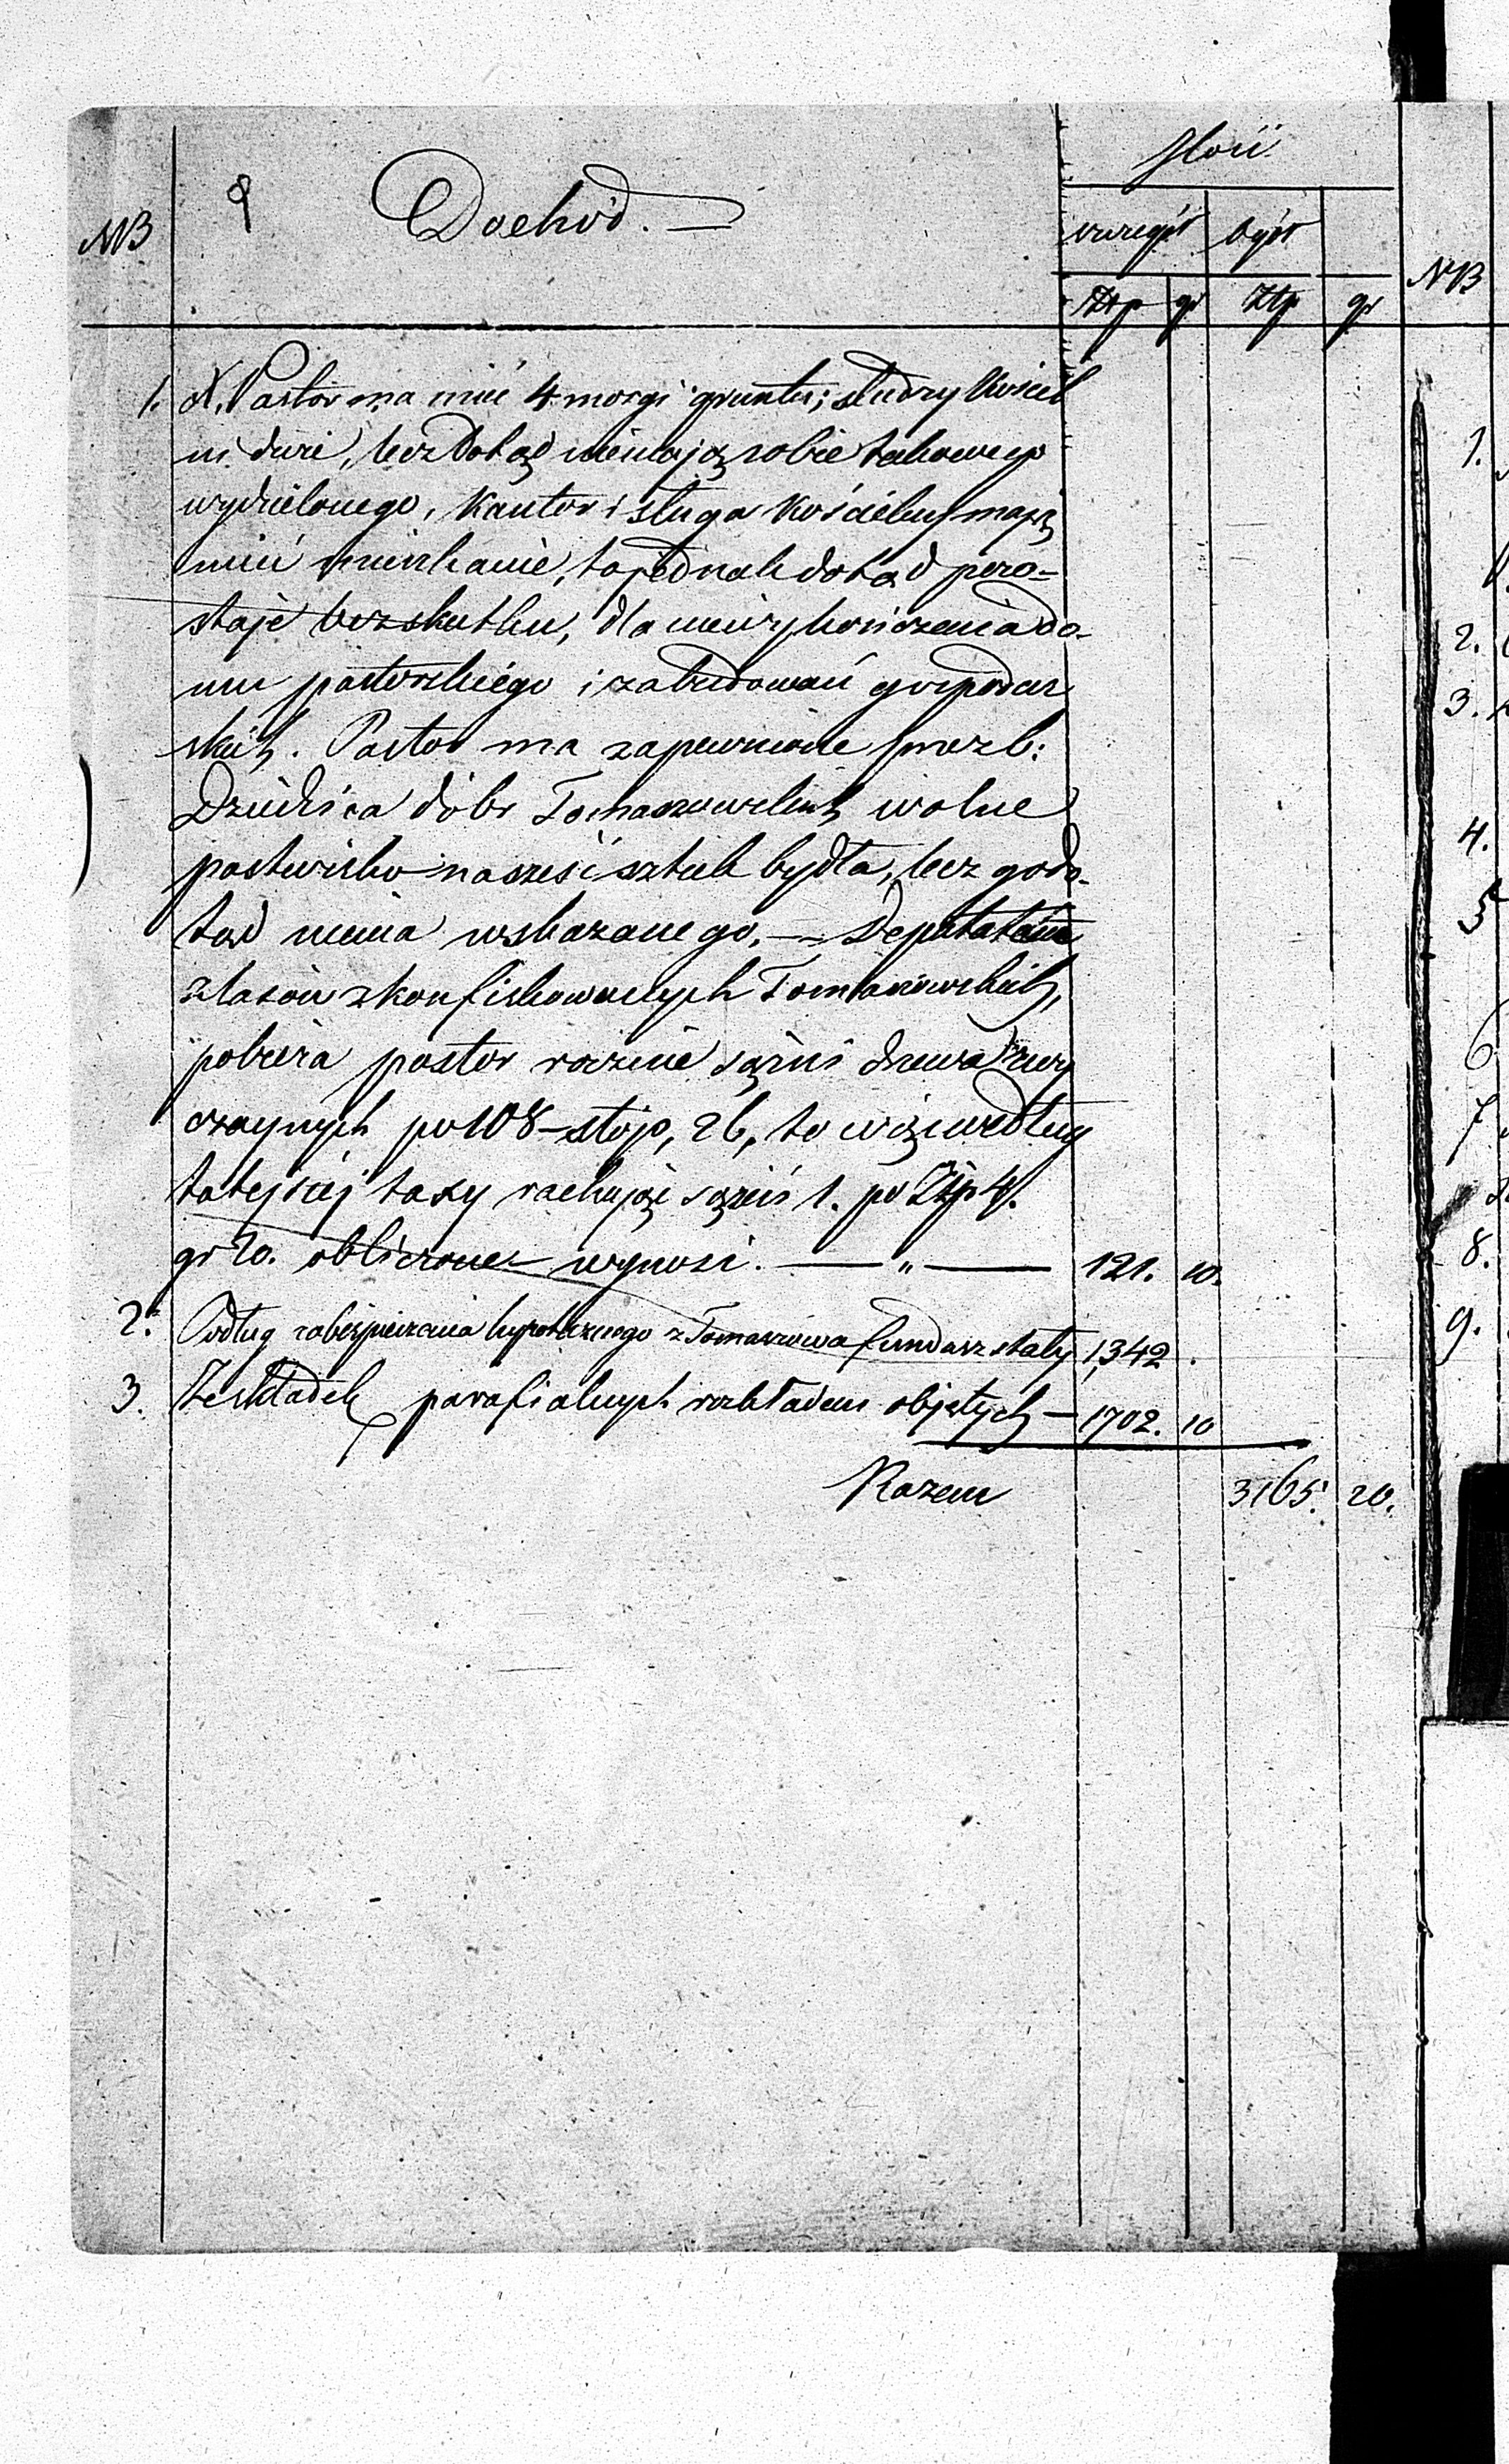 Ilość
NB Dochód. —
w szczegół ogół
Ztp gr Ztp gr
NB
1. X. Pastor ma mieć 4 morgi gruntu; słudzy Kościel
ni dwie, lecz dotąd niemają sobie takowego
wydzielonego, Kantor i sługa Kościelny mają
mieć mieszkanie, to jednak dotąd pozo-
staje bez skutku, dla niewykończenia do-
mu pastorskiego i zabudowań gospodar
skich. Pastor ma zapewnione przez b:
Dziedzica dóbr Tomaszowskich wolne
pastwisko na sześć sztuk bydła, lecz go do-
tąd niema wskazanego. — Deputatem
z lasów zkonfiskowanych Tomaszowskich,
pobiera pastor rocznie sążni drzewa zwy
czaynych po 108 stóp, 26, to więc według
tutejszéj taxy rachując sążeń 1. po Ztp 4.
gr 20. obliczone wynosi. — „ — 121. 10.
2. Podług zabezpieczenia hypotecznego z Tomaszowa fundusz stały 1,342 .
3. Ze składek parafialnych rozkładem objętych — 1702. 10
Razem 3165. 20.
1.
2.
3.
4.
5
6
7
8.
9.